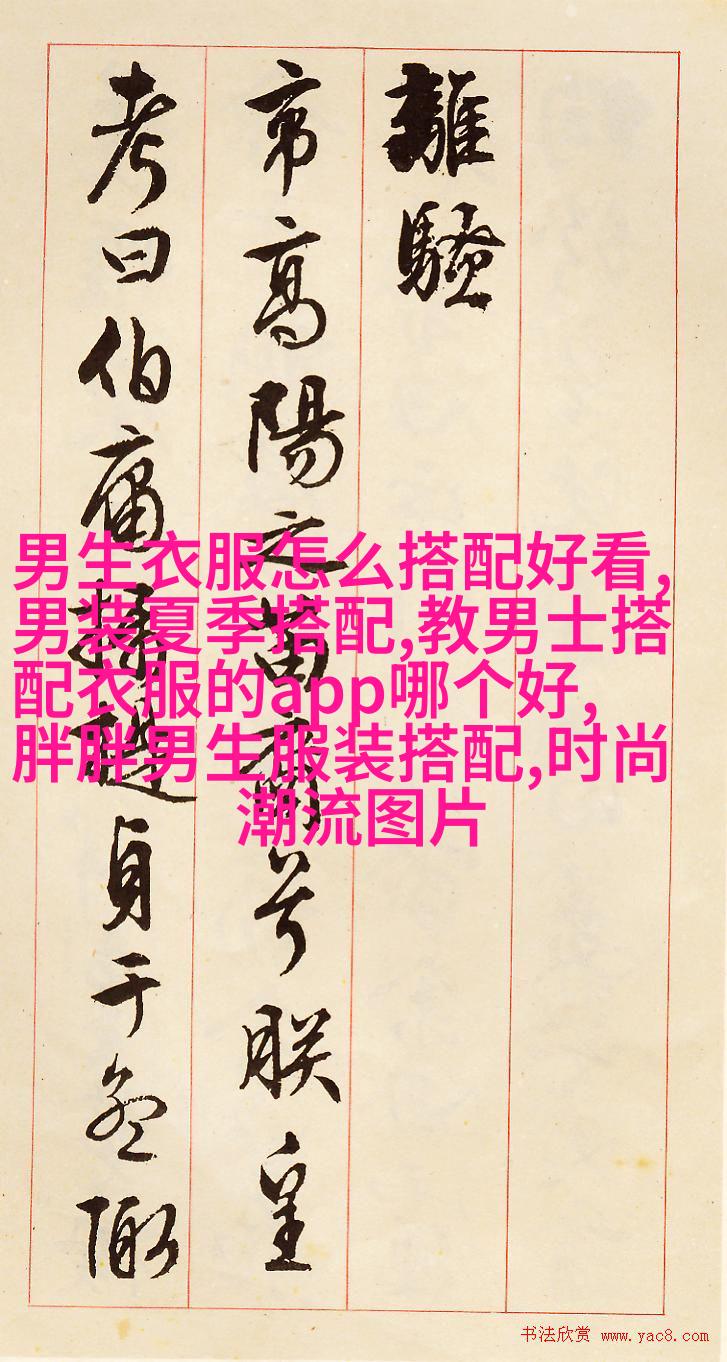 離騷
帝高陽之苗裔兮朕皇
考曰伯庸攝提貞于孟陬
男生衣服怎么搭配好看,
男装夏季搭配,教男士搭
配衣服的app哪个好,
胖胖男生服装搭配,时尚
潮流图片
书法欣赏 www.yac8.com